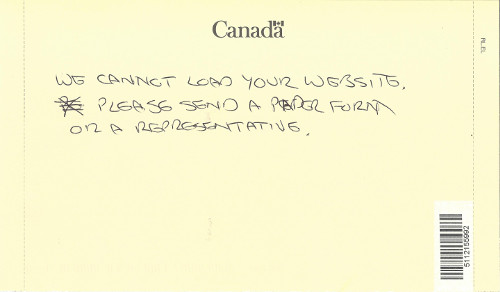 Canada
RLEL
WE CANNOT LOAD YOUR WEBSITE.
PLEASE SEND A PAPER FORM
OR A REPRESENTATIVE.
5112155992